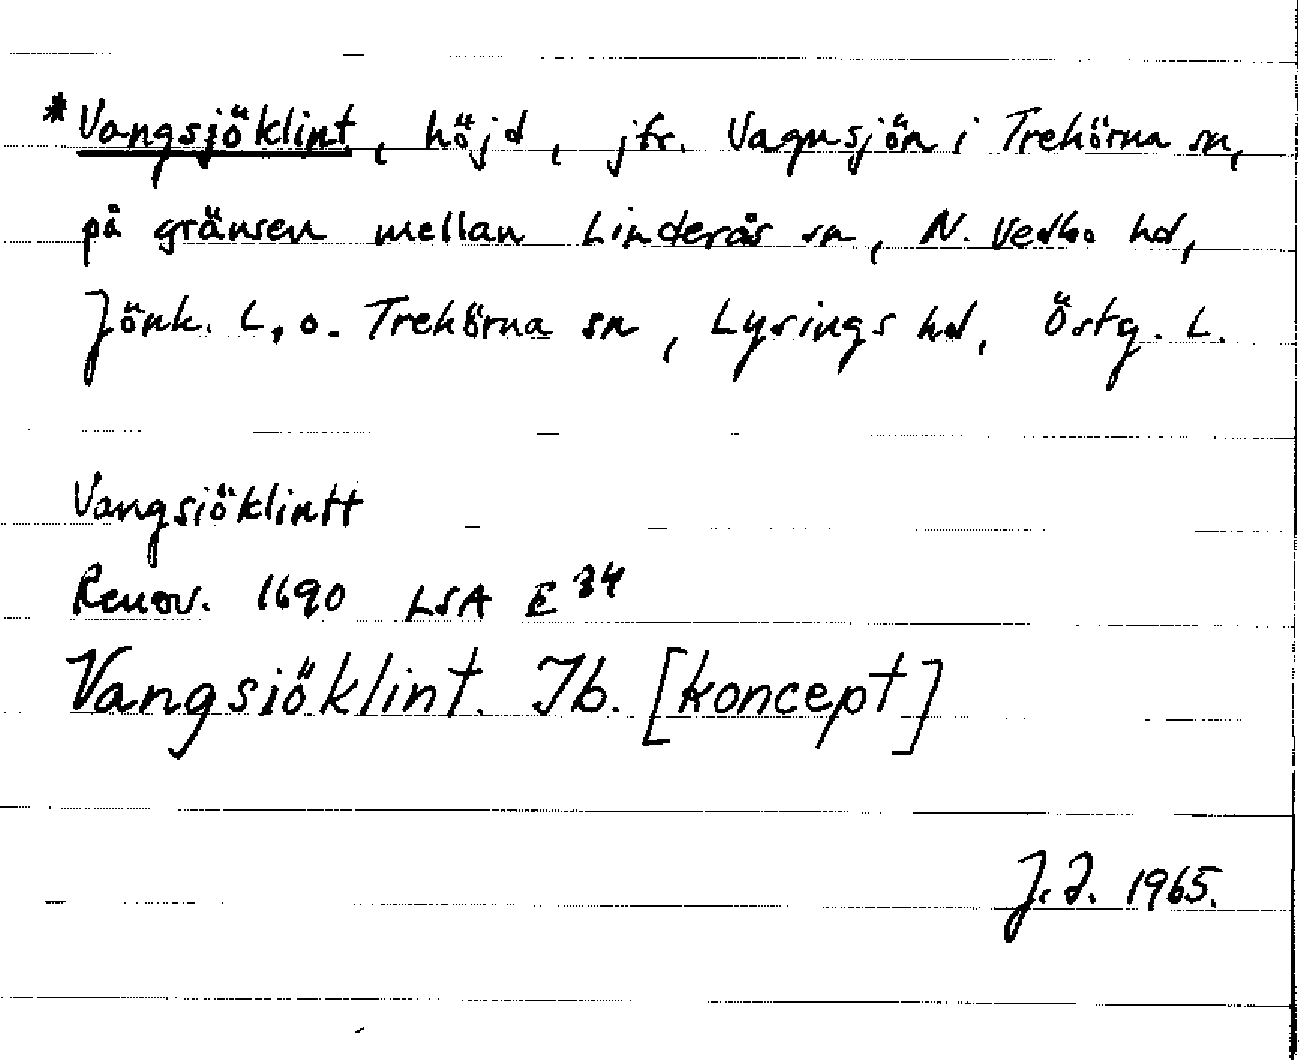 *Vangsjöklint, höjd, jfr. Vagnsjön i Trehörna sn,
på gränsen mellan Linderås sn, N. Vedbo hd,
Jönk. L, o. Trehörna sn, Lysings hd, Östg. L.
Vangsiöklintt
Renov. 1690 LSA E 34
Vangsiöklint. Ib. [koncept]
J.I. 1965.